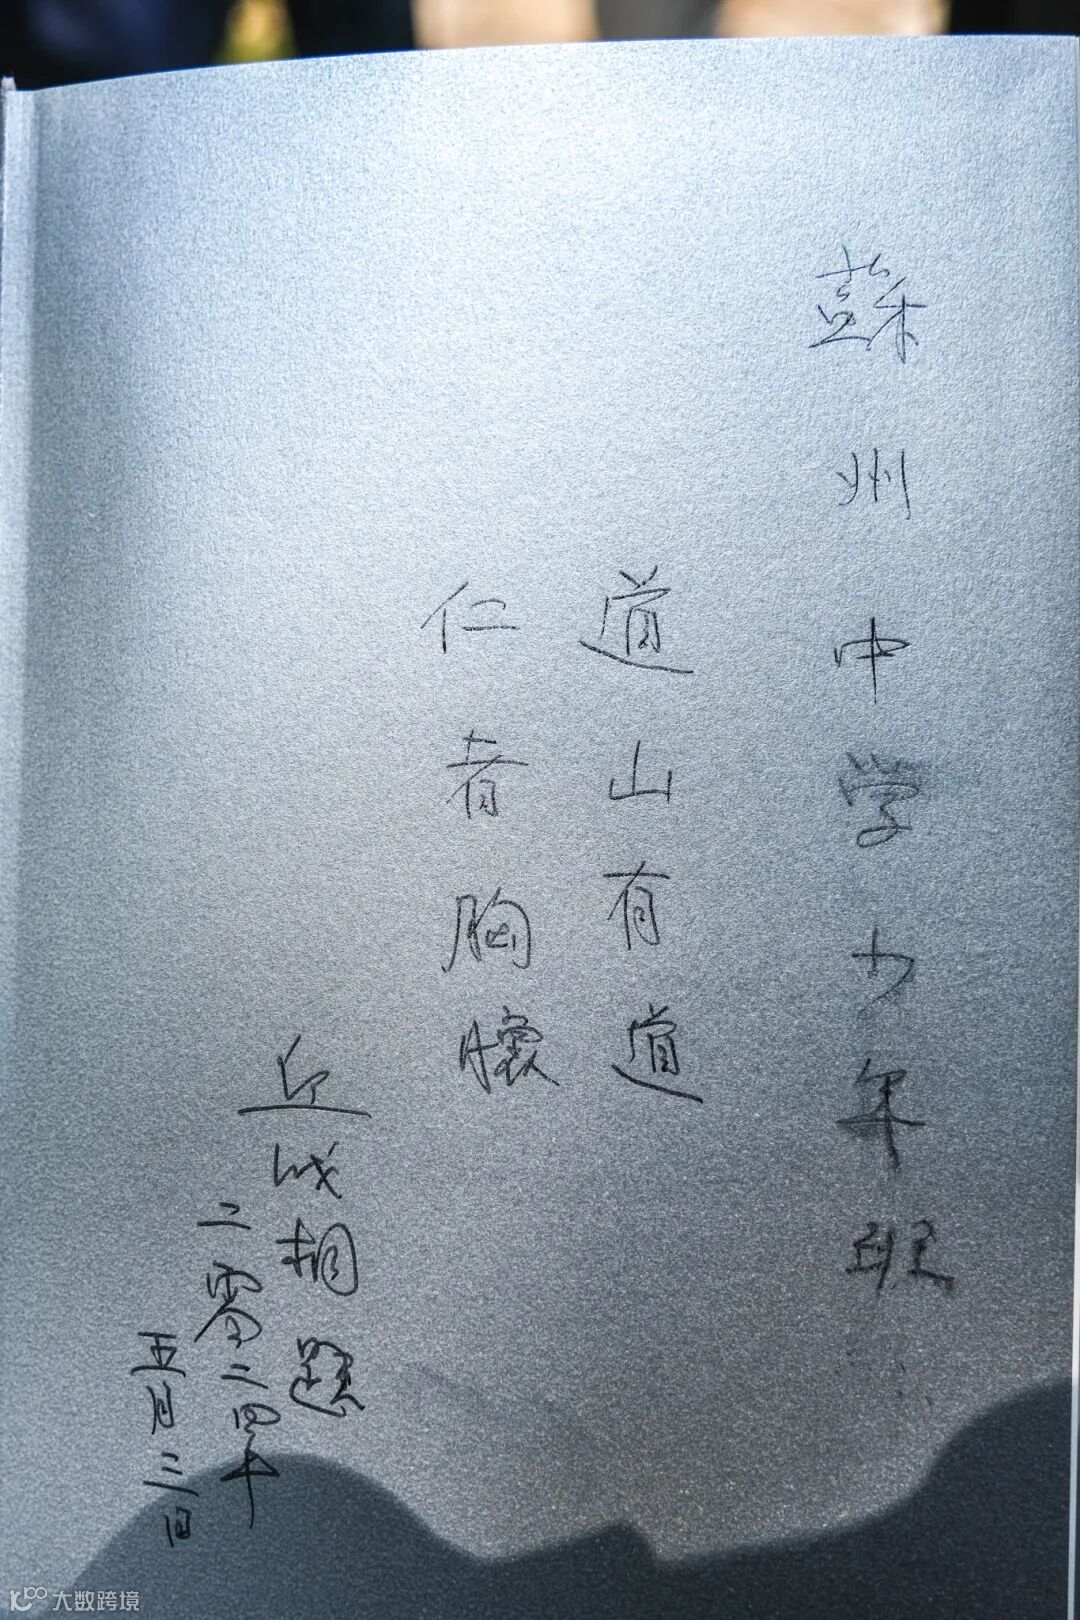 蘇州中学少年班
道山有道
仁者胸懷
丘成桐題
二零二四年
五月三日
大数跨境